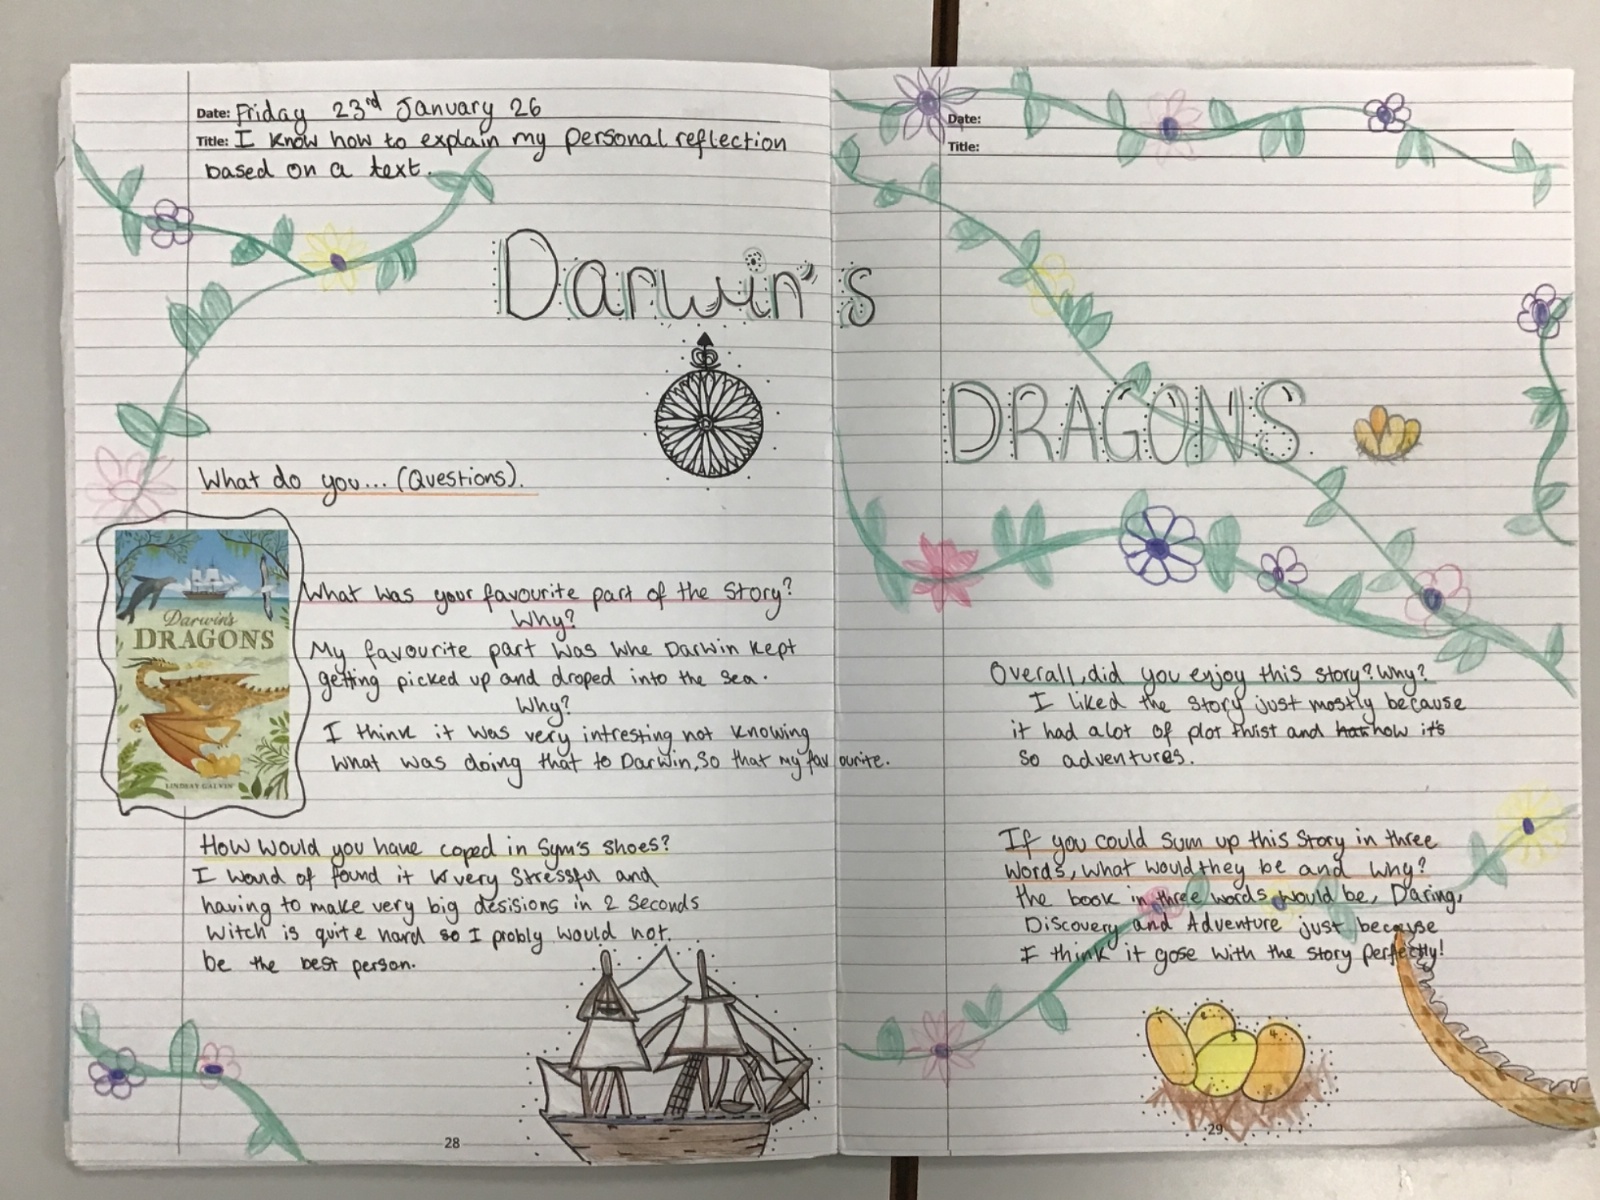 Date: Friday 23rd January 26
Title: I know how to explain my personal reflection
based on a text.
Darwin's
What do you... (Questions).
Darwin's
DRAGONS
LINDSAY GALVIN
What was your favourite part of the Story?
Why?
My favourite part was whe Darwin kept
getting picked up and droped into the sea.
Why?
I think it was very intresting not knowing
what was doing that to Darwin, So that my favourite.
How would you have coped in Sym's shoes?
I woud of found it very stressful and
having to make very big desisions in 2 seconds
witch is quite hard so I probly would not
be the best person.
28
Date:
Title:
DRAGONS.
Overall, did you enjoy this story? Why?
I liked the story just mostly because
it had alot of plot twist and how it's
so adventures.
If you could sum up this Story in three
words, what would they be and why?
the book in three words would be, Daring,
Discovery and Adventure just because
I think it gose with the story perfectly!
29